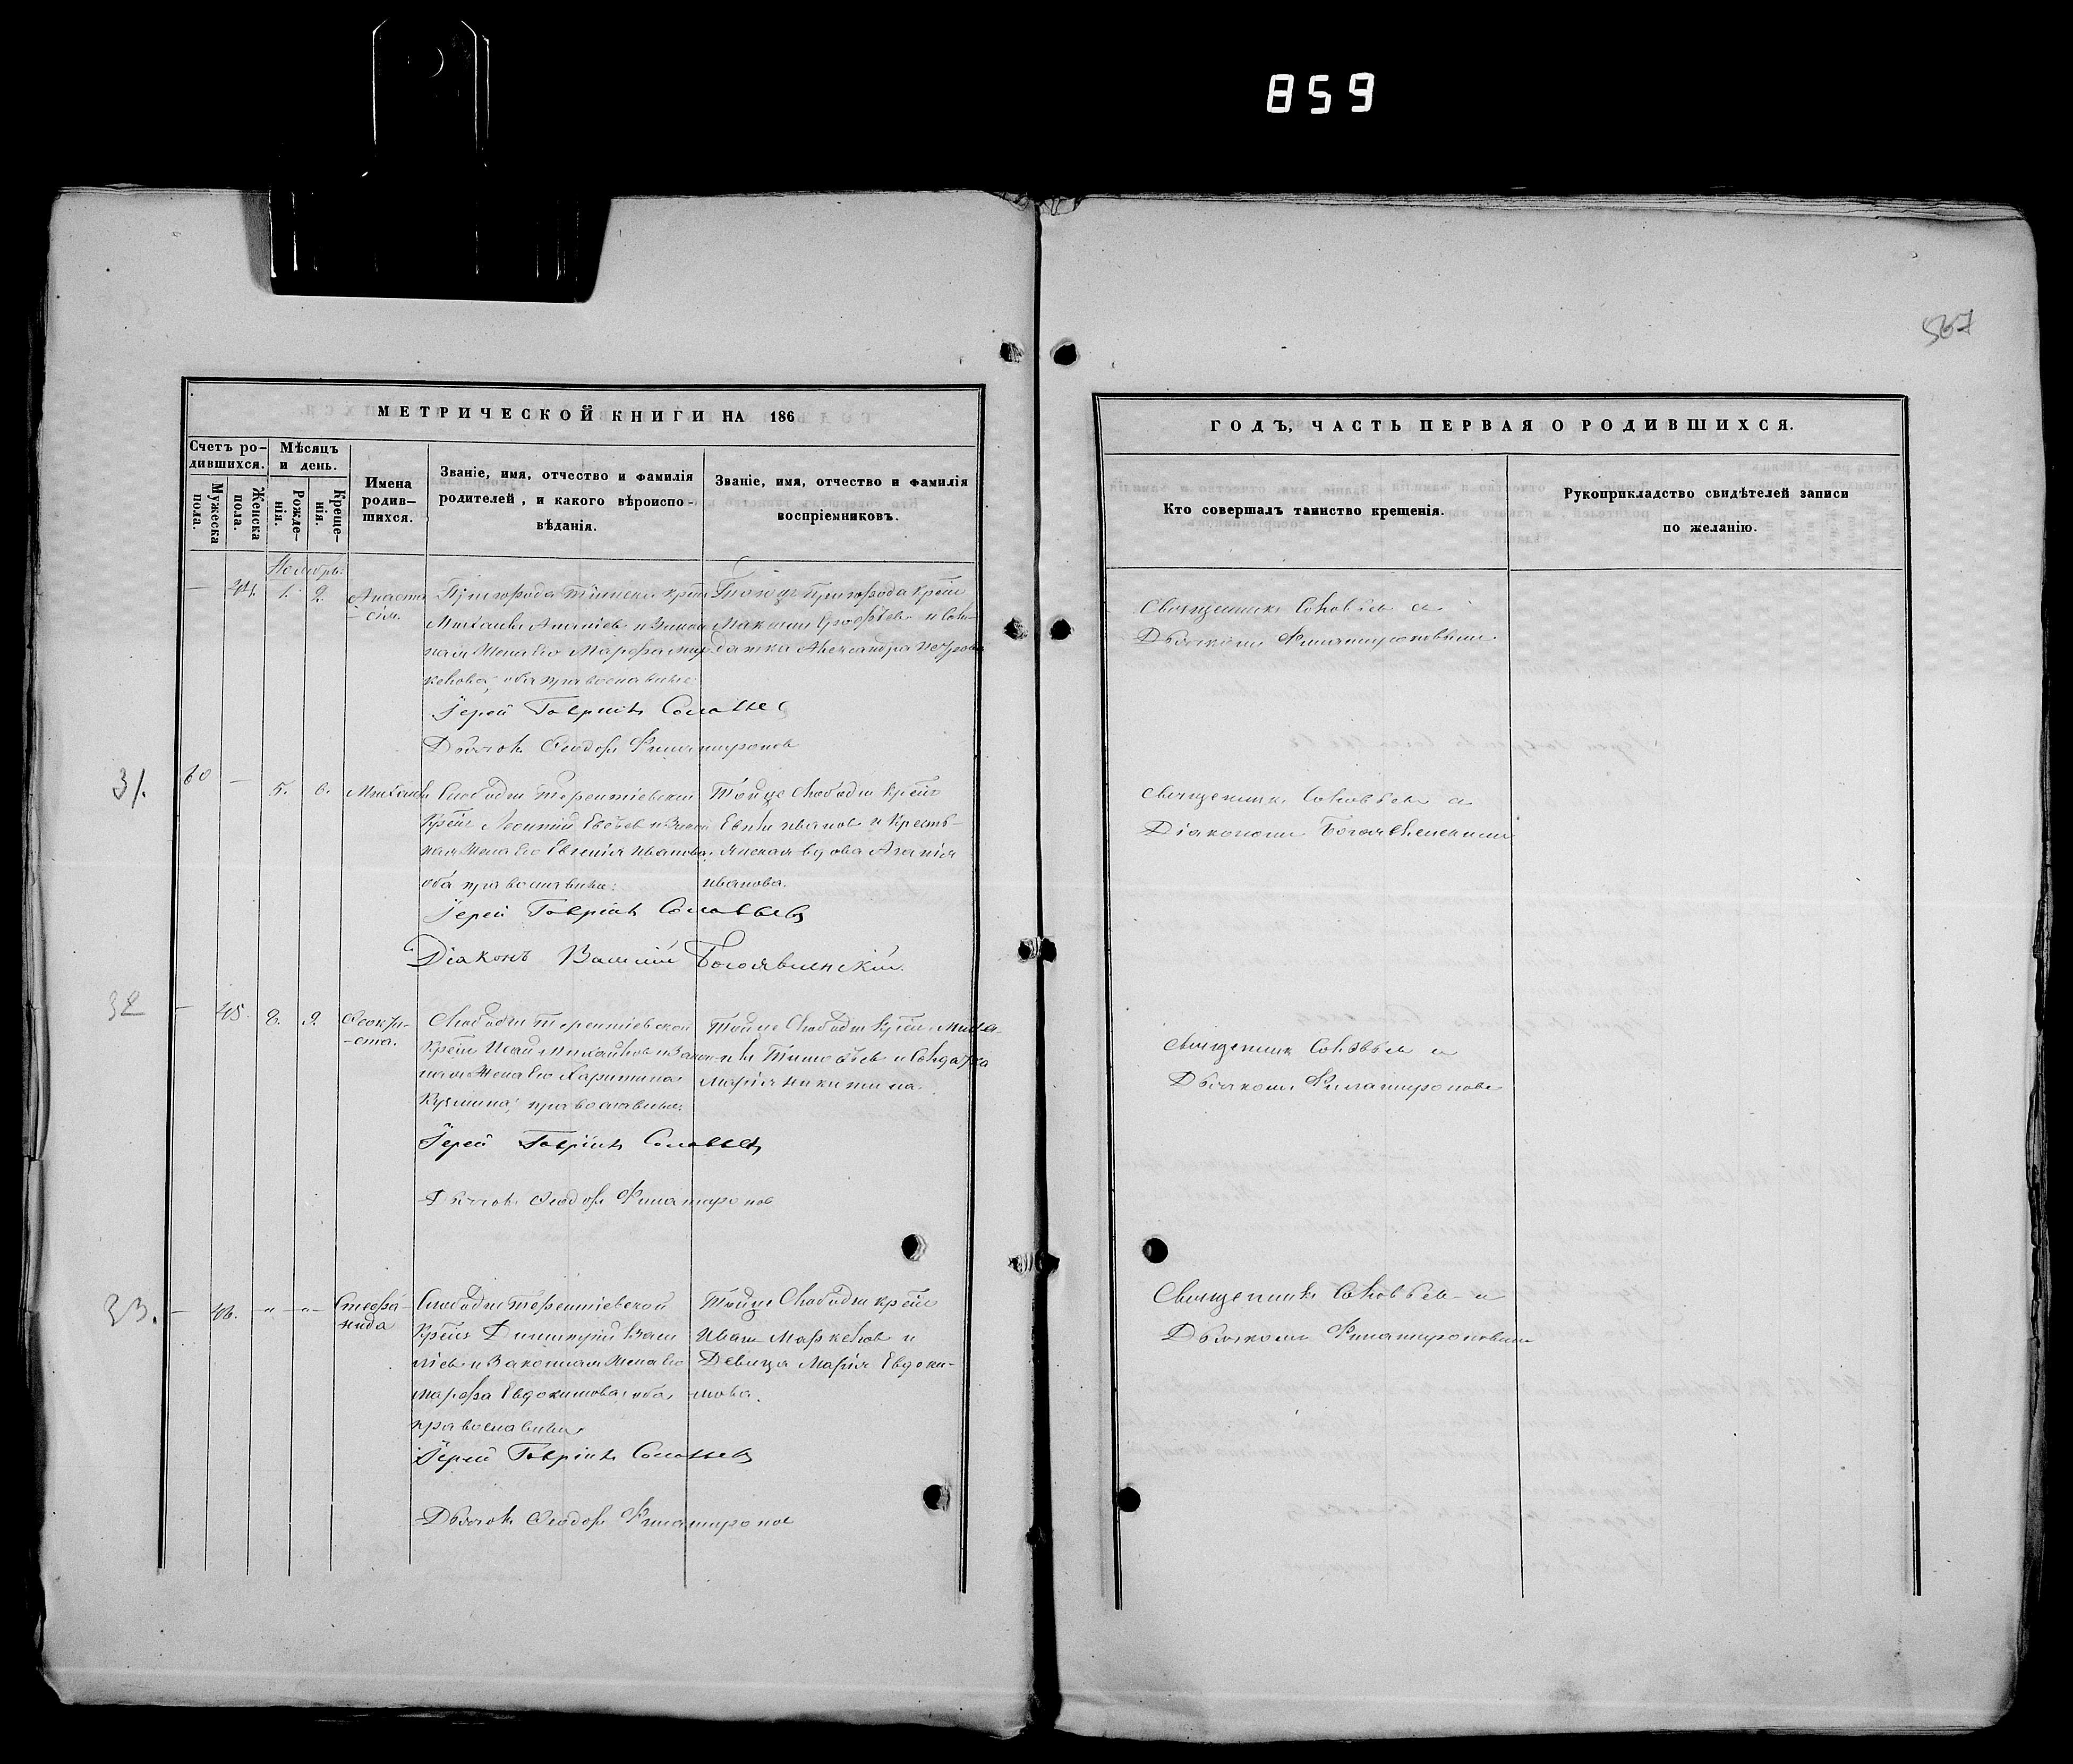 859
567
МЕТРИЧЕСКОЙ КНИГИ НА 186
Счетъ ро-
дившихся.
Мужеска
пола.
Женска
пола.
Мѣсяцъ
и день.
Рожде-
нія.
Креще-
нія.
Имена
родив-
шихся.
Званіе, имя, отчество и фамилія
родителей, и какого вѣроиспо-
вѣданія.
Званіе, имя, отчество и фамилія
воспріемниковъ.
Ноябрь.
— 44. 1. 2.
Анаста-
сія.
Пригорода
Михаилъ Ананіевъ и закон
ная жена его Марѳа
оба православные
Іерей Гавріилъ Соловьев
Дьячокъ Ѳеодоръ Филатроповъ
пригорода
Максимъ и сол-
датка Александра Петрова
31.
60 — 5. 6.
Михаилъ
Слободы Терентіевской
Леонтій и закон
ная жена его Евгенія Иванова,
оба православные.
Іерей Гавріилъ Соловьевъ
Діаконъ Василій Богоявленскій.
Тойже слободы
Иванов и кресть-
янская вдова
Иванова.
32
— 45. 8. 9.
Ѳеокти-
ста.
Слободы Терентіевской
Исай Михайлов и закон-
ная жена его Харитина
Кузмина, православные.
Іерей Гавріилъ Соловьевъ
Дьячокъ Ѳеодоръ Филатроповъ
Тойже слободы Миха-
илъ и солдатка
Марія Никитина.
33.
— 46. „ — „ —
Стефа-
нида
Слободы Терентіевской
Димитрій Васи
ліев и законная жена его
Марѳа Евдокимова, оба
православные
Іерей Гавріилъ Соловьевъ
Дьячокъ Ѳеодоръ Филатроповъ
Тойже слободы
Иванъ Маркелов и
девица Марія Евдоки-
мова.
ГОДЪ, ЧАСТЬ ПЕРВАЯ О РОДИВШИХСЯ.
Кто совершалъ таинство крещенія.
Рукоприкладство свидѣтелей записи
по желанію.
Священникъ Соловьев с
Дьячкомъ Филатроповымъ.
Священникъ Соловьев с
Діакономъ Богоявленскимъ
Священникъ Соловьев с
Дьячкомъ Филатропове
Священникъ Соловьев с
Дьячкомъ Филатроповымъ